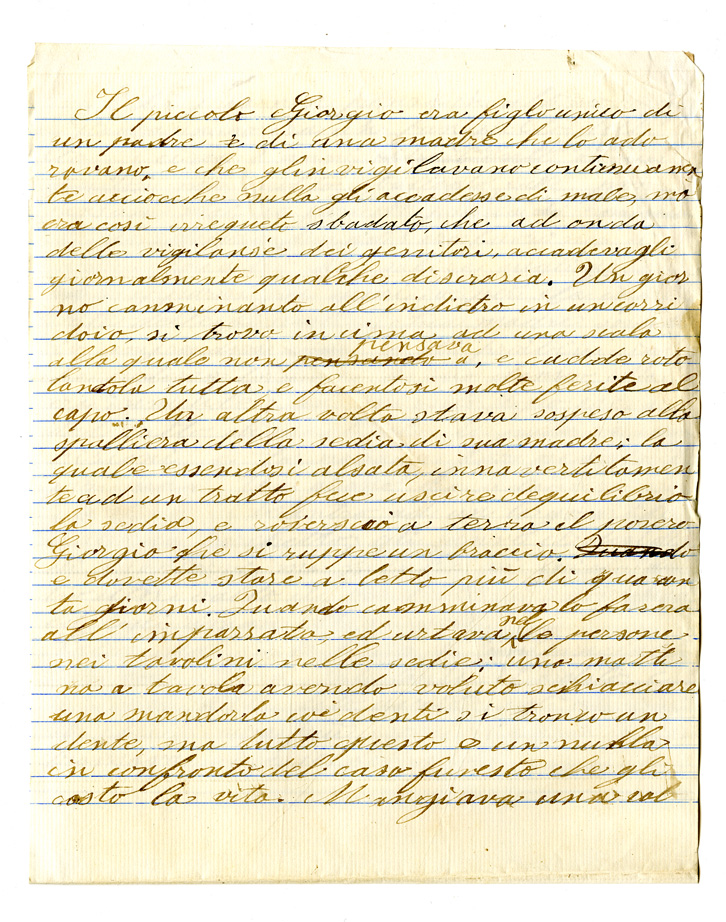 Il piccolo Giorgio era figlo unico di
un padre e di una madre che lo ado
ravano, e che glinvigilavano continuamen
te acciocche nulla gli accadesse di male, ma
era così irrequeto sbadato, che ad onda
delle vigilanse dei genitori, accadevagli
giornalmente qualche discrasia. Un gior
no camminanto all'indietro in un corri
doio, si trovo in cima ad una scala
alla quale non pensando pensava a, e cadde roto
landola tutta, e facentosi molte ferite al
capo. Un altra volta stava sospeso alla
spalliera della sedia di sua madre; la
quale essendosi alsata, innavertitamen
te ad un tratto fece uscire dequilibrio
la sedia, e roversciò a terra il povero
Giorgio che si ruppe un braccio. Quando
e dovette stare a letto più di quaran
ta giorni. Quando camminava lo faceva
all'impazzata, ed urtava nel le persone
nei tavolini nelle sedie; una matti
na a tavola avendo voluto schiacciare
una mandorla coi denti si tronco un
dente, ma tutto questo e un nulla
in confronto del caso funesto che gli
costo la vita. Mangiava una vol